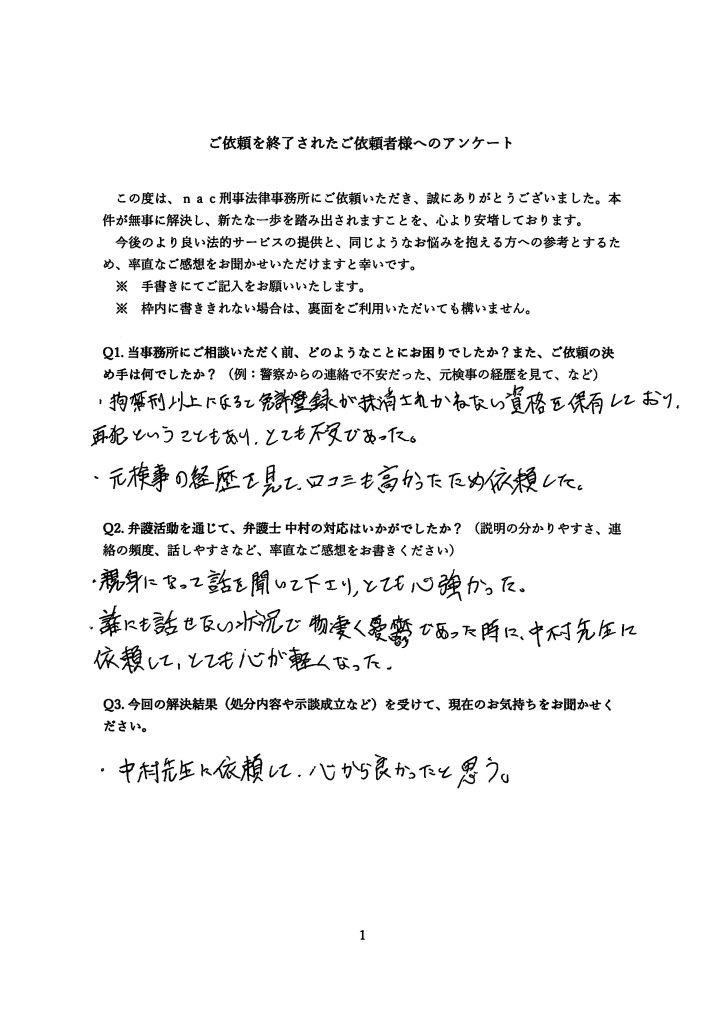 ご依頼を終了されたご依頼者様へのアンケート
この度は、ｎａｃ刑事法律事務所にご依頼いただき、誠にありがとうございました。本
件が無事に解決し、新たな一歩を踏み出されますことを、心より安堵しております。
今後のより良い法的サービスの提供と、同じようなお悩みを抱える方への参考とするた
め、率直なご感想をお聞かせいただけますと幸いです。
※　手書きにてご記入をお願いいたします。
※　枠内に書ききれない場合は、裏面をご利用いただいても構いません。
Q1. 当事務所にご相談いただく前、どのようなことにお困りでしたか？また、ご依頼の決
め手は何でしたか？（例：警察からの連絡で不安だった、元検事の経歴を見て、など）
・拘禁刑以上になると免許登録が抹消されかねない資格を保有しており、
再犯ということもあり、とても不安であった。
・元検事の経歴を見て、口コミも高かったため依頼した。
Q2. 弁護活動を通じて、弁護士 中村の対応はいかがでしたか？（説明の分かりやすさ、連
絡の頻度、話しやすさなど、率直なご感想をお書きください）
・親身になって話を聞いて下さり、とても心強かった。
・誰にも話せない状況で物凄く憂鬱であった時に、中村先生に
依頼して、とても心が軽くなった。
Q3. 今回の解決結果（処分内容や示談成立など）を受けて、現在のお気持ちをお聞かせく
ださい。
・中村先生に依頼して、心から良かったと思う。
1